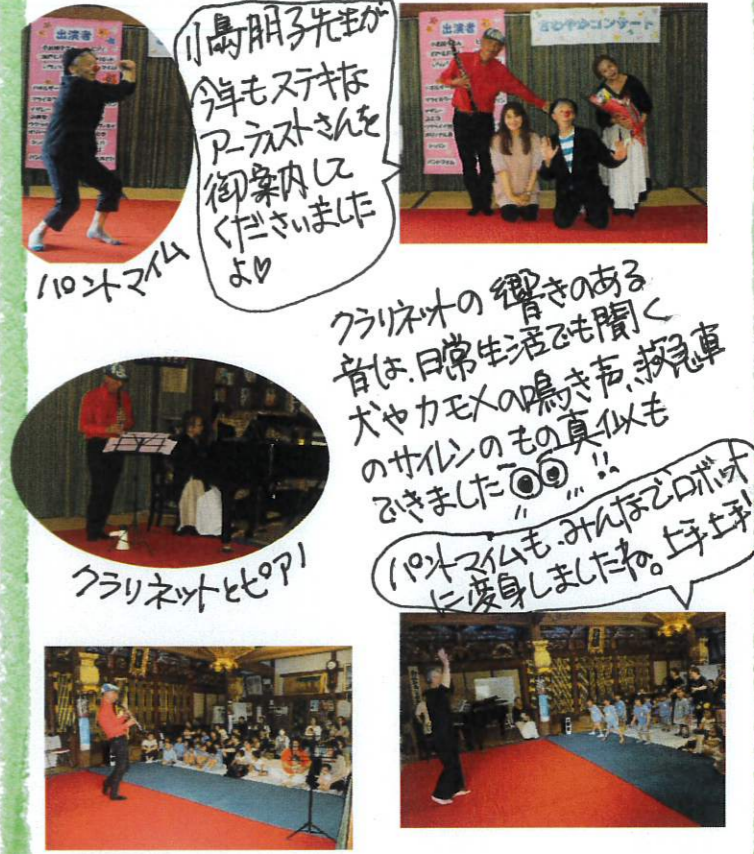 小島明子先生が
今年もステキな
アーティストさんを
御案内して
くださいました
よ♡
出演者
出演者
さわやかコンサート
パントマイム
クラリネットの響きのある
音は、日常生活でも聞く
犬やカモメの鳴き声、救急車
のサイレンのもの真似も
できました!!
クラリネットとピアノ
パントマイムも、みんなでロボット
に変身しましたね。上手上手